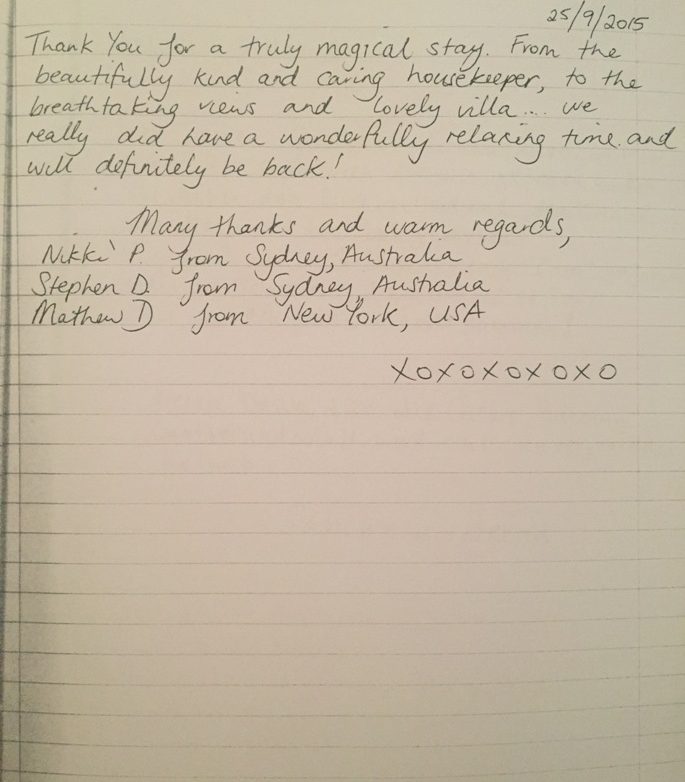 25/9/2015
Thank You for a truly magical stay. From the
beautifully kind and caring housekeeper, to the
breathtaking views and lovely villa... we
really did have a wonderfully relaxing time and
will definitely be back!
Many thanks and warm regards,
Nikki P. from Sydney, Australia
Stephen D. from Sydney, Australia
Mathew D from New York, USA
XOXOXOXOXO